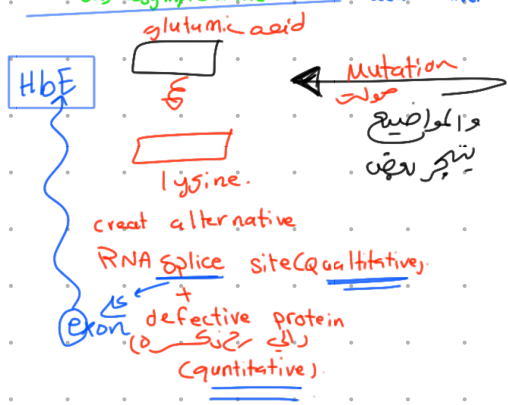 glutamic acid
HbE
Mutation
صولت
والمواضيع
يتجر بعض
lysine.
creat alternative
RNA splice site(Qualtitative)
+
exon
defective protein
(quntitative)